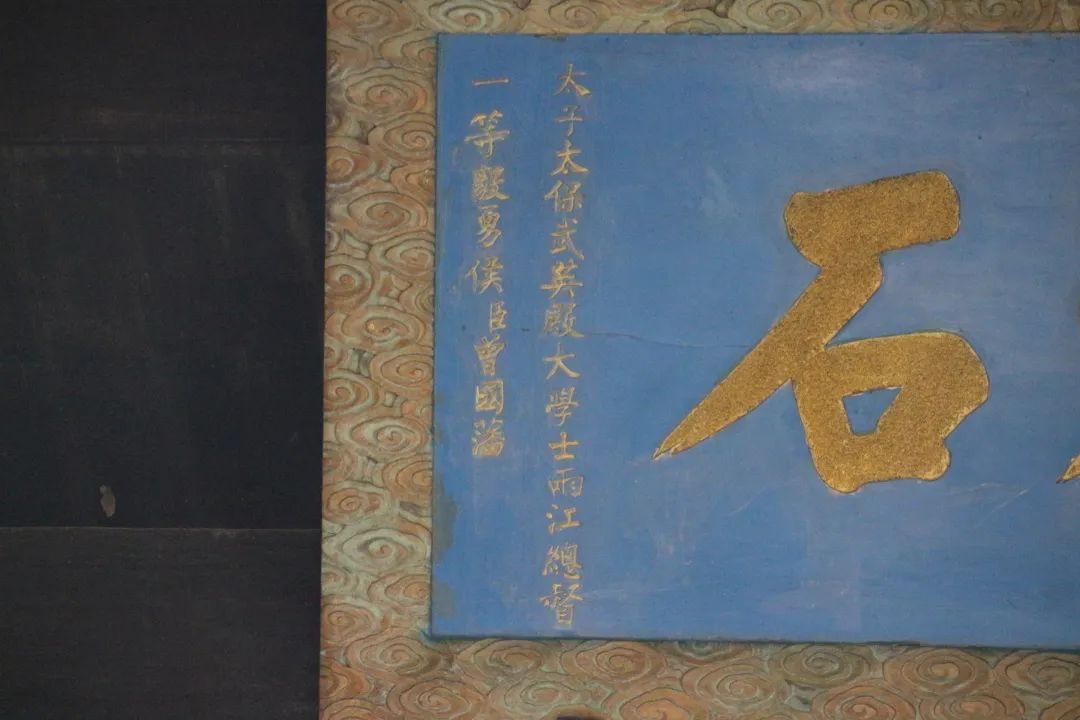 石
太子太保武英殿大學士兩江總督
一等毅勇侯臣曾國藩